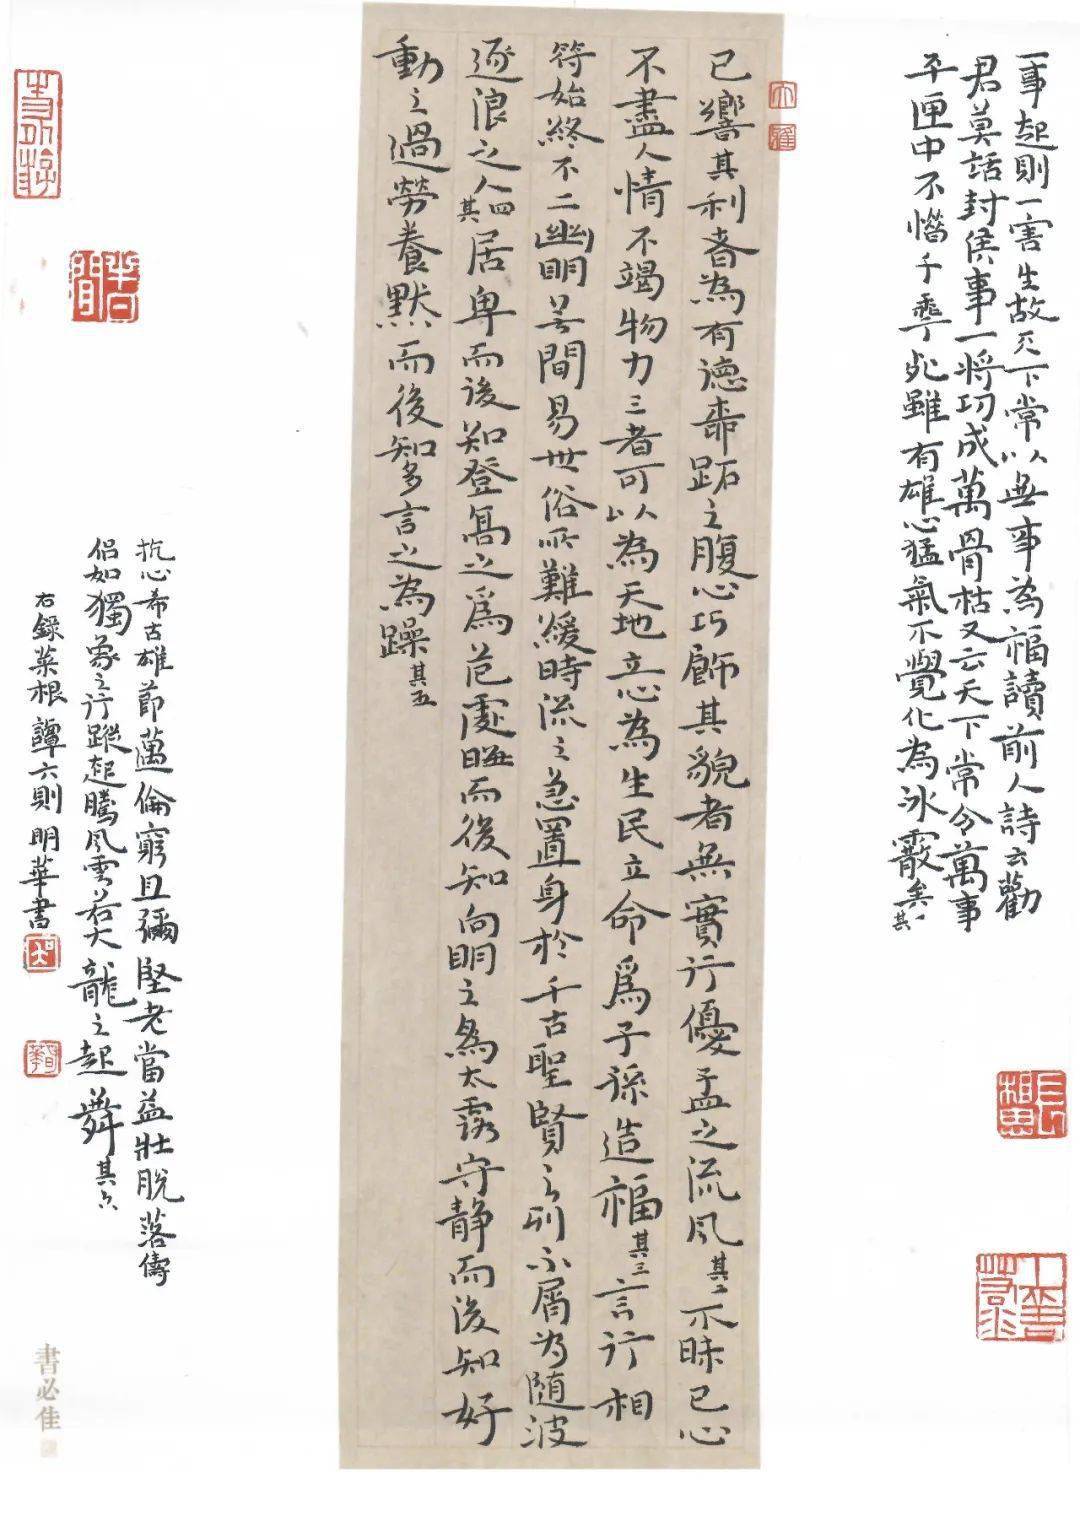 一事起則一害生故天下常以無事為福讀前人詩云勸
君莫話封侯事一將功成萬骨枯又云天下常令萬事
平匣中不惜千年死雖有雄心猛氣不覺化為冰霰矣其一
已嚮其利者為有德啇跖之腹心巧飾其貌者無實行優孟之流風其二不昧已心
不盡人情不竭物力三者可以為天地立心為生民立命爲子孫造福其三言行相
符始終不二幽明無間易世俗所難緩時流之急置身於千古聖賢之列不屑為随波
逐浪之人其四居卑而後知登高之爲危處晦而後知向明之為太露守静而後知好
動之過勞養默而後知多言之為躁其五
抗心希古雄節邁倫窮且彌堅老當益壯脫落儔
侣如獨象之行蹤超騰風雲若大龍之起舞其六
右錄菜根譚六則明華書
書必佳